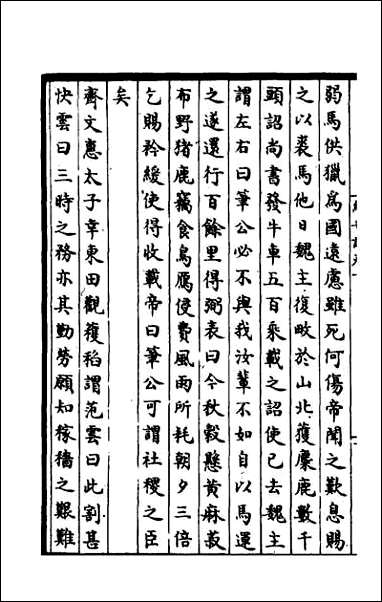 弱馬供獵爲國遠慮雖死何傷帝聞之歎息賜
之以裘馬他日魏主復畋於山北獲麋鹿數千
頭詔尚書發牛車五百乘載之詔使已去魏主
謂左右曰筆公必不與我汝輩不如自以馬運
之遂還行百餘里得弼表曰今秋穀懸黄麻菽
布野猪鹿竊食鳥鴈侵費風雨所耗朝夕三倍
乞賜矜緩使得收載帝曰筆公可謂社稷之臣
矣
齊文惠太子幸東田觀穫稻謂范雲曰此割甚
快雲曰三時之務亦其勤勞願知稼穡之艱難